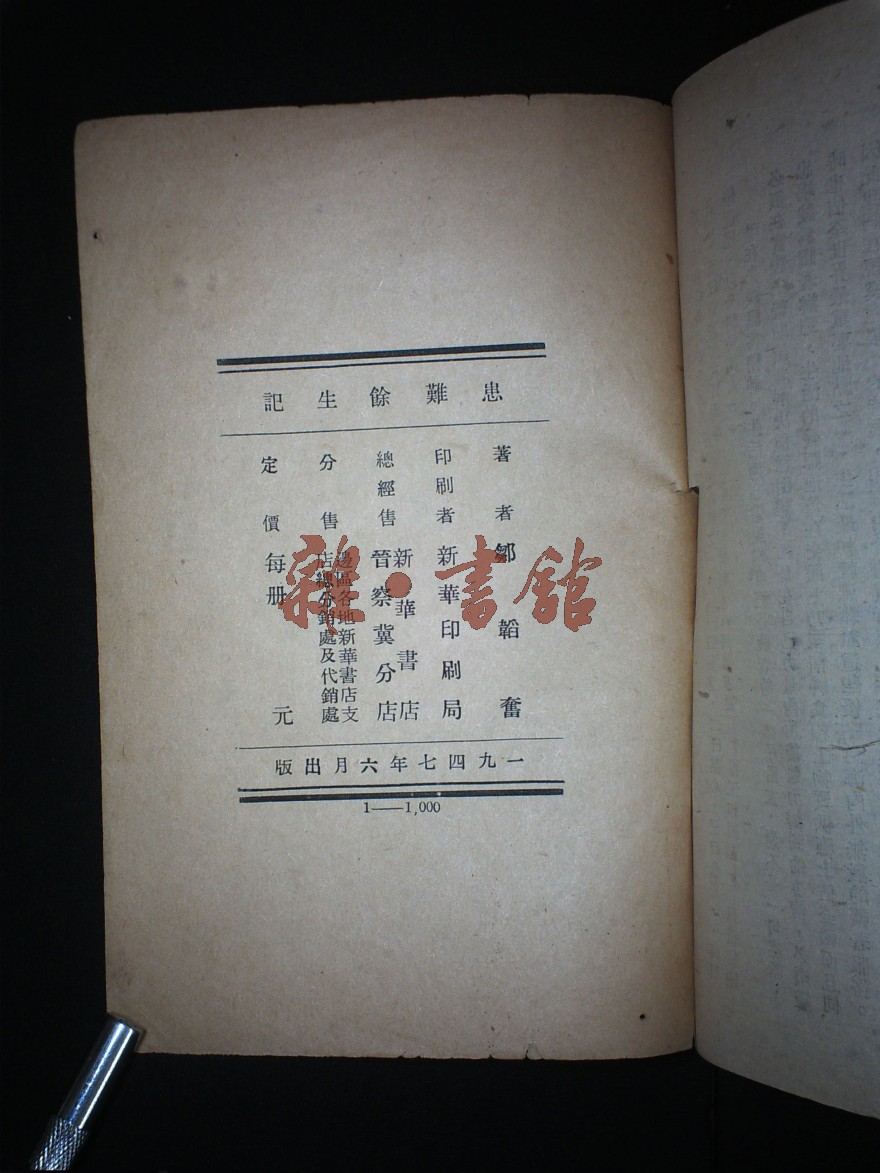 患難餘生記
著者 鄒韜奮
印刷者 新華印刷局
總經售 新華書店
晉察冀分店
分售 邊區各地新華書店支
店總分銷處及代銷處
定價 每册 元
一九四七年六月出版
1——1,000
雜·書館